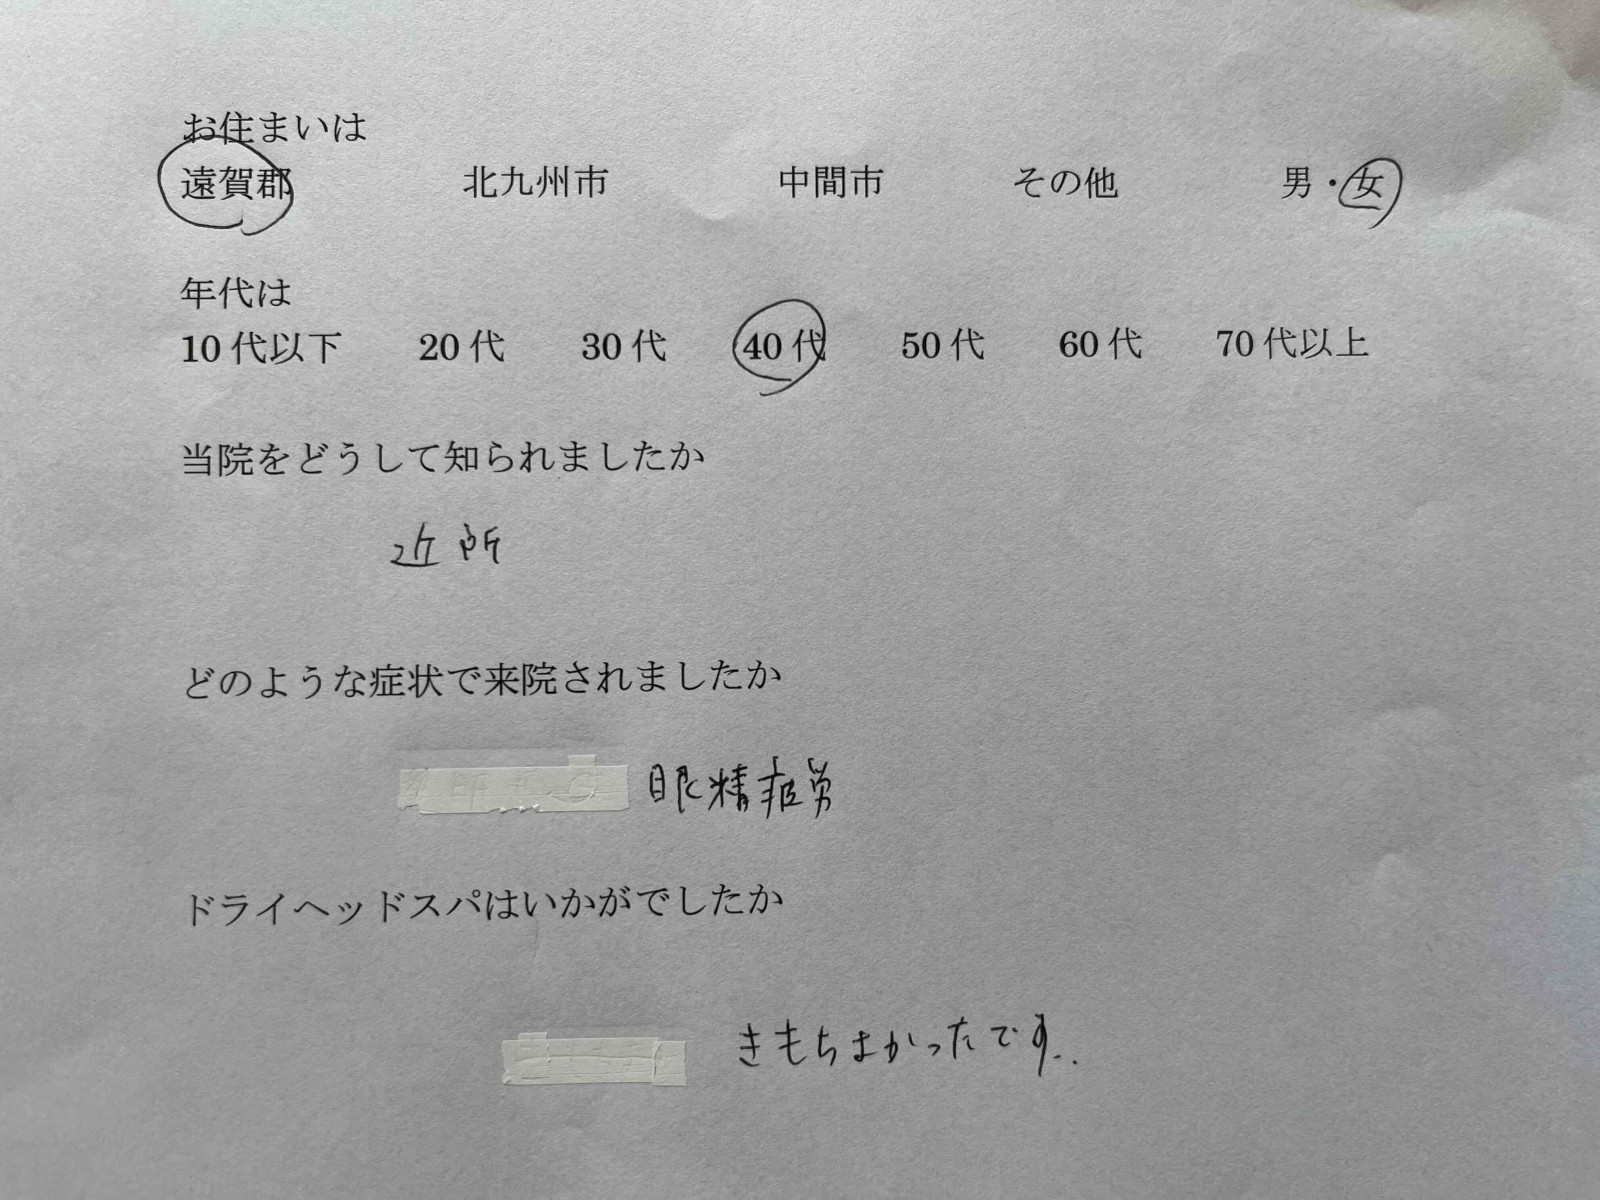 お住まいは
遠賀郡 北九州市 中間市 その他 男・女
年代は
10代以下 20代 30代 40代 50代 60代 70代以上
当院をどうして知られましたか
近所
どのような症状で来院されましたか
眼精疲労
ドライヘッドスパはいかがでしたか
きもちよかったです..